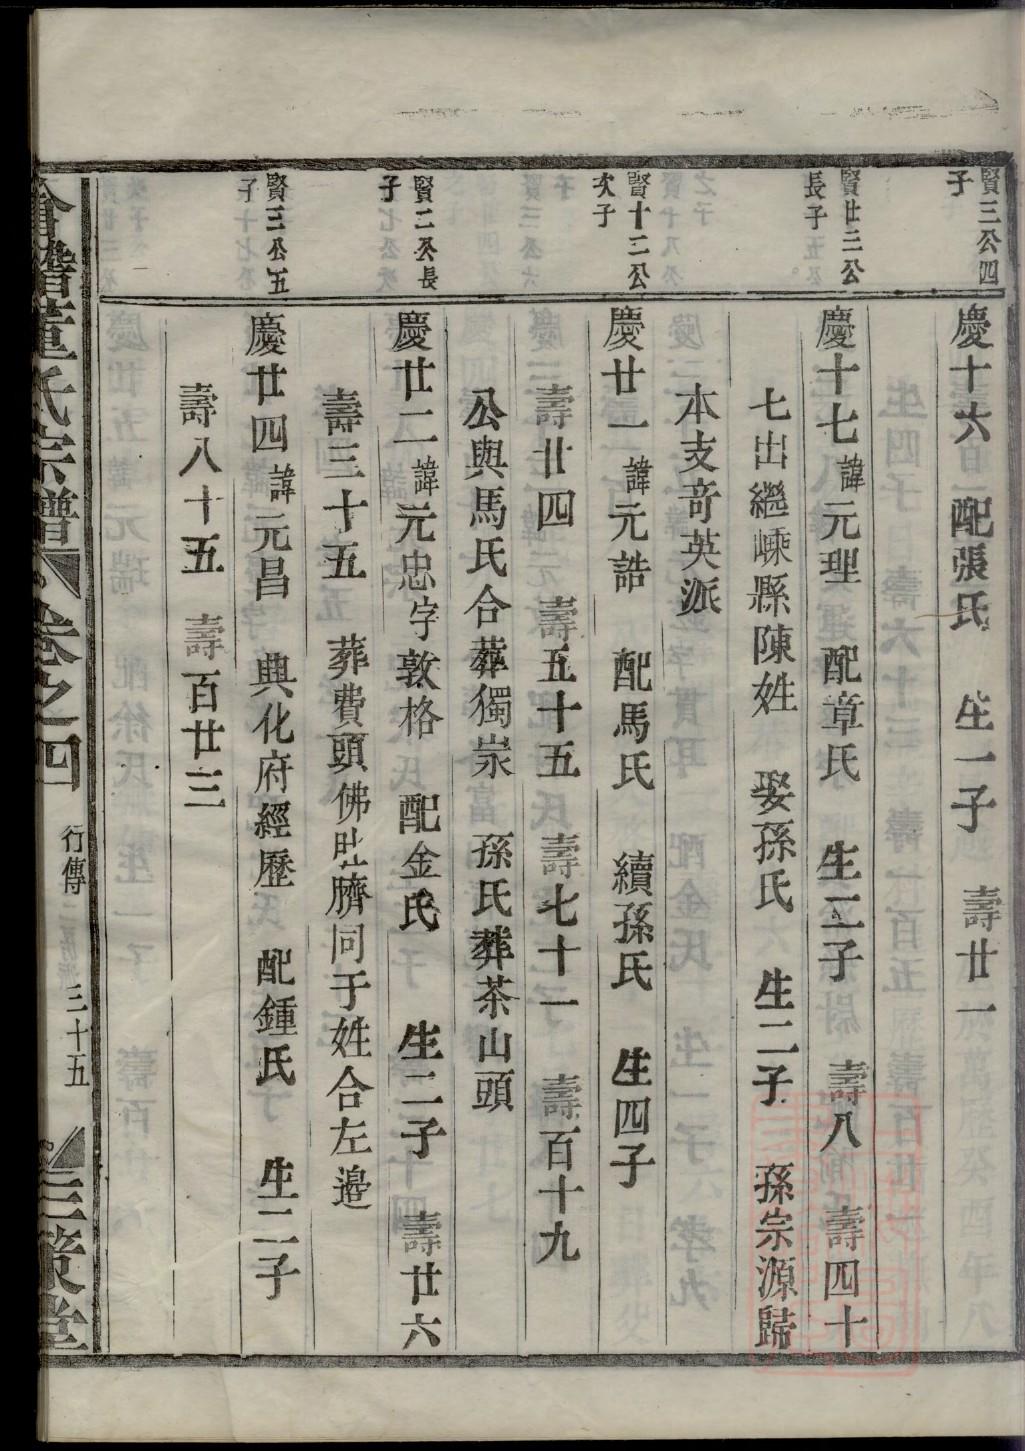 賢三公四
子
慶十六 配張氏 生一子 壽廿一
賢廿三公
長子
慶十七諱元理 配章氏 生三子 壽八 壽四十
七出繼嵊縣陳姓 娶孫氏 生二子 孫宗源歸
本支奇英派
賢十二公
次子
慶廿一諱元誥 配馬氏 續孫氏 生四子
壽廿四 壽五十五 壽七十一 壽百十九
公與馬氏合葬獨崬 孫氏葬茶山頭
賢二公長
子
慶廿二諱元忠字敦格 配金氏 生二子 壽廿六
壽三十五 葬費頭佛肚臍同于姓合左邉
賢三公五
子
慶廿四諱元昌 興化府經歷 配鍾氏 生二子
壽八十五 壽百廿三
會稽董氏宗譜 卷之四 行傳 三十五 三策堂